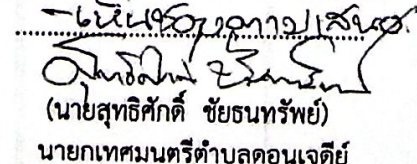 - เห็นชอบตามเสนอ
(นายสุทธิศักดิ์ ชัยธนทรัพย์)
นายกเทศมนตรีตำบลดอนเจดีย์